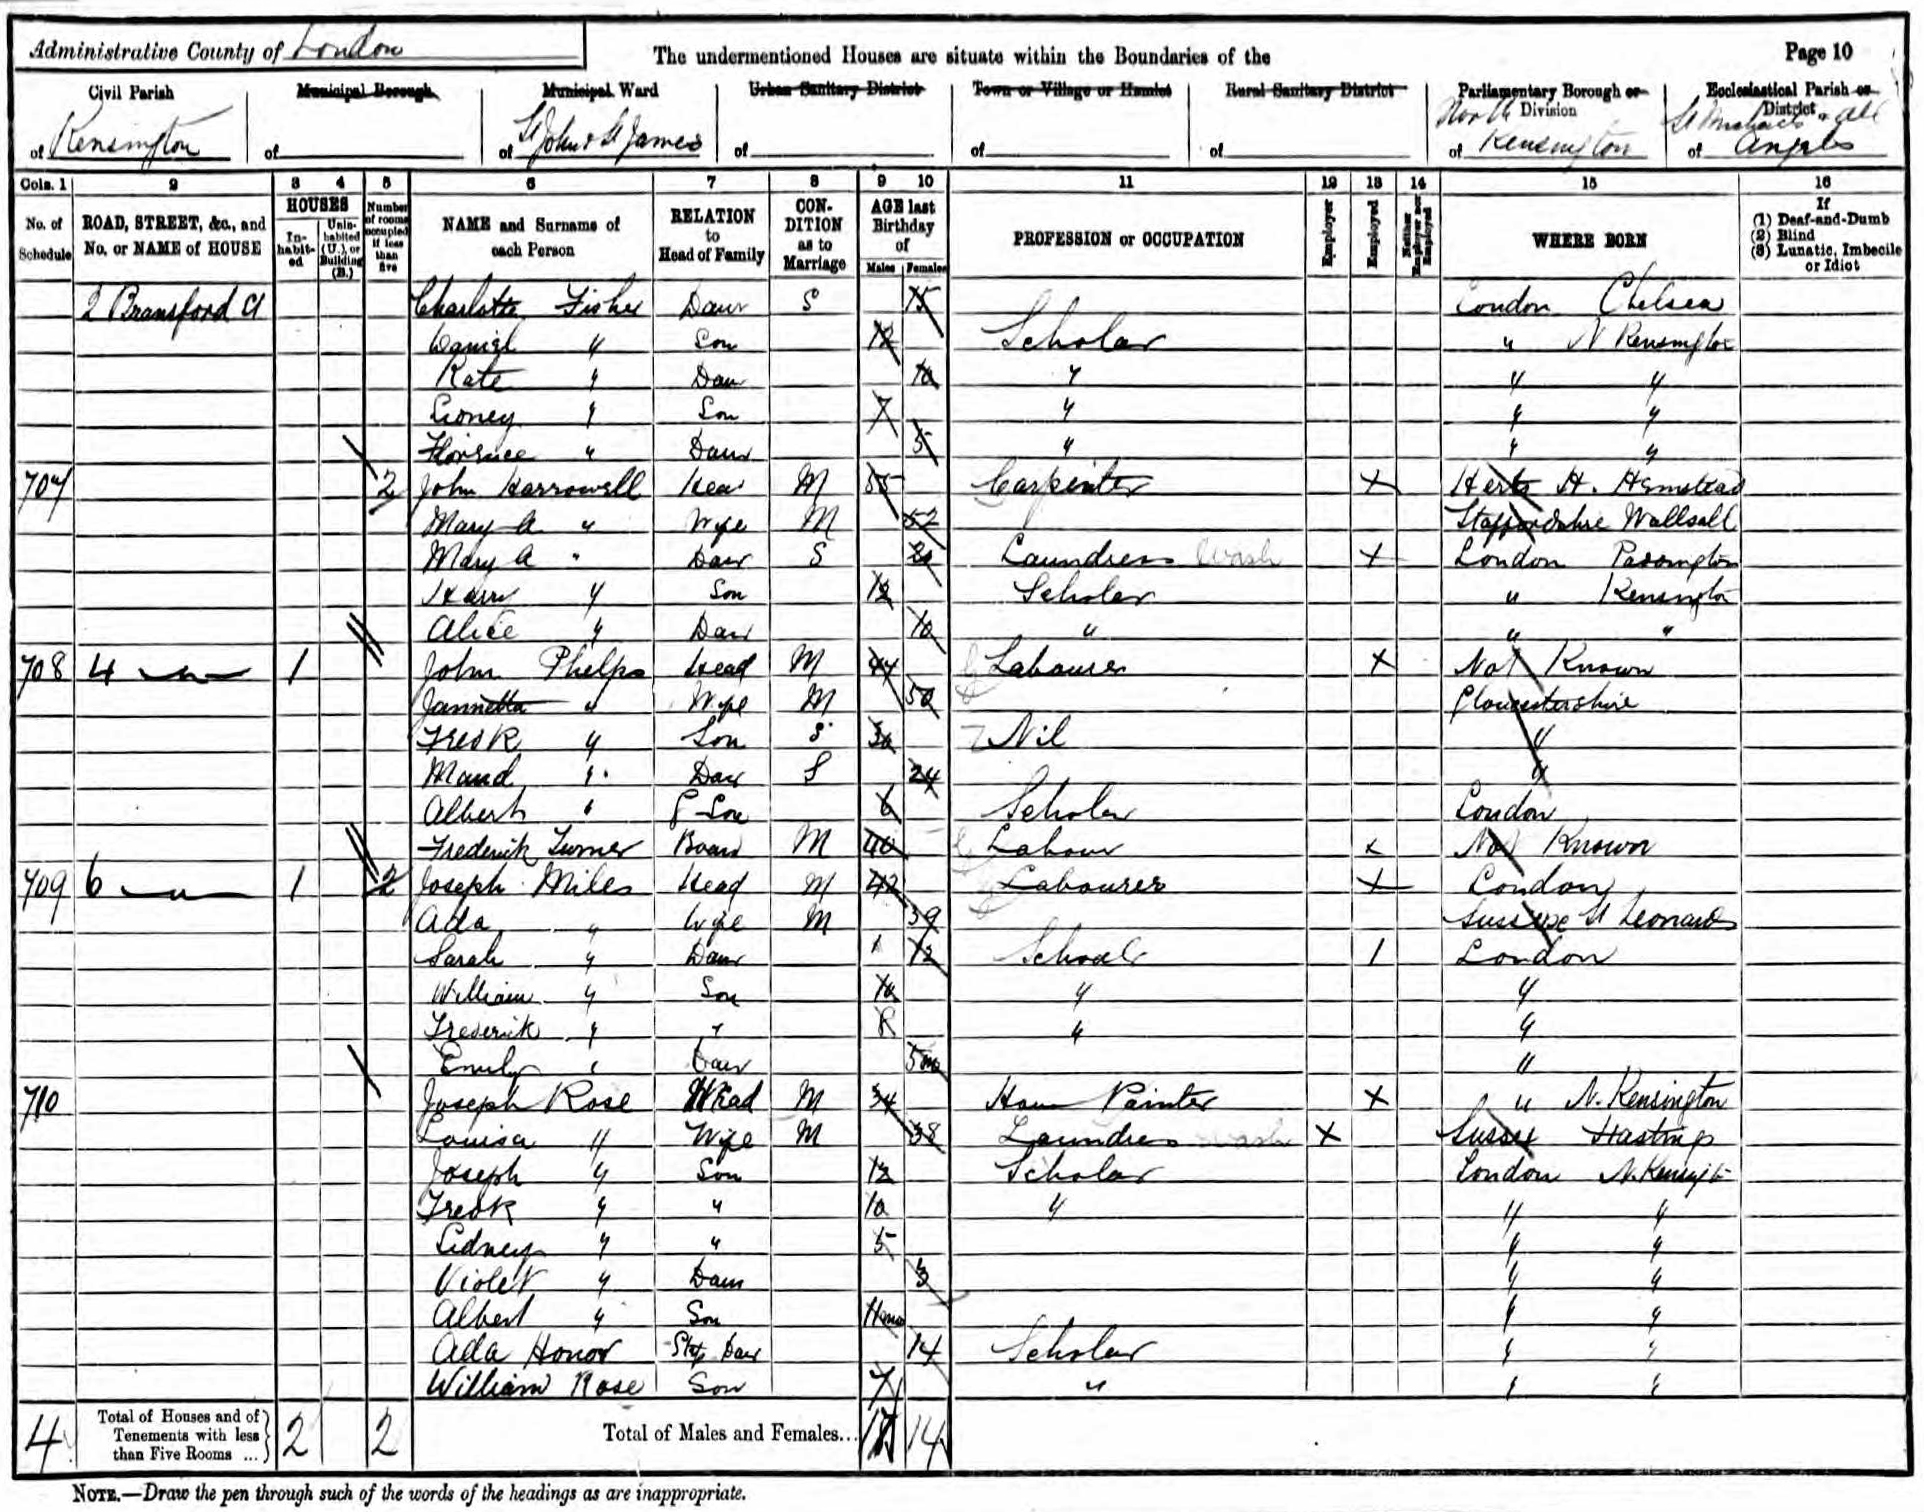 Administrative County of London
The undermentioned Houses are situate within the Boundaries of the
Page 10
Civil Parish of Kensington
Municipal Borough of
Municipal Ward of St John & St James
Urban Sanitary District of
Town or Village or Hamlet of
Rural Sanitary District of
Parliamentary Borough or Division of North Kensington
Ecclesiastical Parish or District of St Michaels & All Angels
Cols. 1 2 3 4 5 6 7 8 9 10 11 12 13 14 15 16
No. of Schedule
ROAD, STREET, &c., and No. or NAME of HOUSE
HOUSES
Inhabited
Uninhabited (U.), or Building (B.)
Number of rooms occupied if less than five
NAME and Surname of each Person
RELATION to Head of Family
CONDITION as to Marriage
AGE last Birthday of
Males Females
PROFESSION or OCCUPATION
Employer
Employed
Neither Employer nor Employed
WHERE BORN
If
(1) Deaf-and-Dumb
(2) Blind
(3) Lunatic, Imbecile or Idiot
2 Bransford Ct Charlotte Fisher Daur S 15 London Chelsea
Daniel " Son 12 Scholar " N Kensington
Kate " Daur 10 " " "
Sidney " Son 7 " " "
Florence " Daur 5 " " "
707 2 John Harrowell Head M 55 Carpenter X Herts H. Hemstead
Mary A " Wife M 52 Staffordshire Wallsall
Mary A " Daur S 20 Laundress Wash X London Paddington
Harry " Son 12 Scholar " Kensington
Alice " Daur 10 " " "
708 4 " 1 John Phelps Head M 44 Labourer X Not Known
Jannetta " Wife M 50 Gloucestershire
Fredk " Son S 30 Nil "
Maud " Daur S 24 "
Albert " G Son 6 Scholar London
Frederick Turner Board M 40 Labour x Not Known
709 6 " 1 2 Joseph Miles Head M 42 Labourer X London
Ada " Wife M 39 Sussex St Leonards
Sarah " Daur 12 Scholar 1 London
William " Son 10 " "
Frederick " " 8 " "
Emily " Daur 5 mo "
710 Joseph Rose Head M 34 House Painter X " N. Kensington
Louisa " Wife M 38 Laundress Wash X Sussex Hastings
Joseph " Son 12 Scholar London N. Kensingtn
Fredk " " 10 " " "
Sidney " " 5 " "
Violet " Daur 3 " "
Albert " Son " "
Ada Honor Step Daur 14 Scholar " "
William Rose Son 7 " " "
4 Total of Houses and of Tenements with less than Five Rooms ... 2 2 Total of Males and Females... 17 14
NOTE.—Draw the pen through such of the words of the headings as are inappropriate.